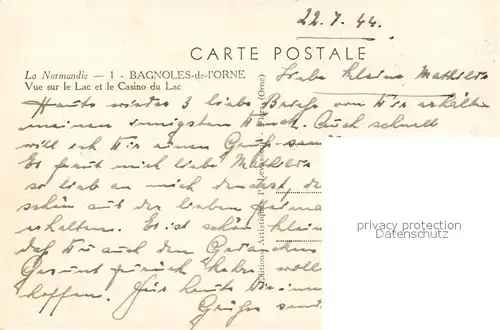 22.7.44.
CARTE POSTALE
La Normandie — 1 - BAGNOLES-de-l'ORNE
Vue sur le Lac et le Casino du Lac
Liebe kleine Mathilde
Heute wieder 3 liebe Briefe von Dir erhalten
meinen innigsten Dank. Auch schnell
will ich Dir einen Gruß
Es freut mich liebe Mathilde
so lieb an mich denkst,
schön aus der lieben Heimat
erhalten. Es ist schön
daß Du auch den Gedanken
Gesund zurück
hoffen. Für heute
Grüße
Editions Artistiques (Orne)
privacy protection
Datenschutz